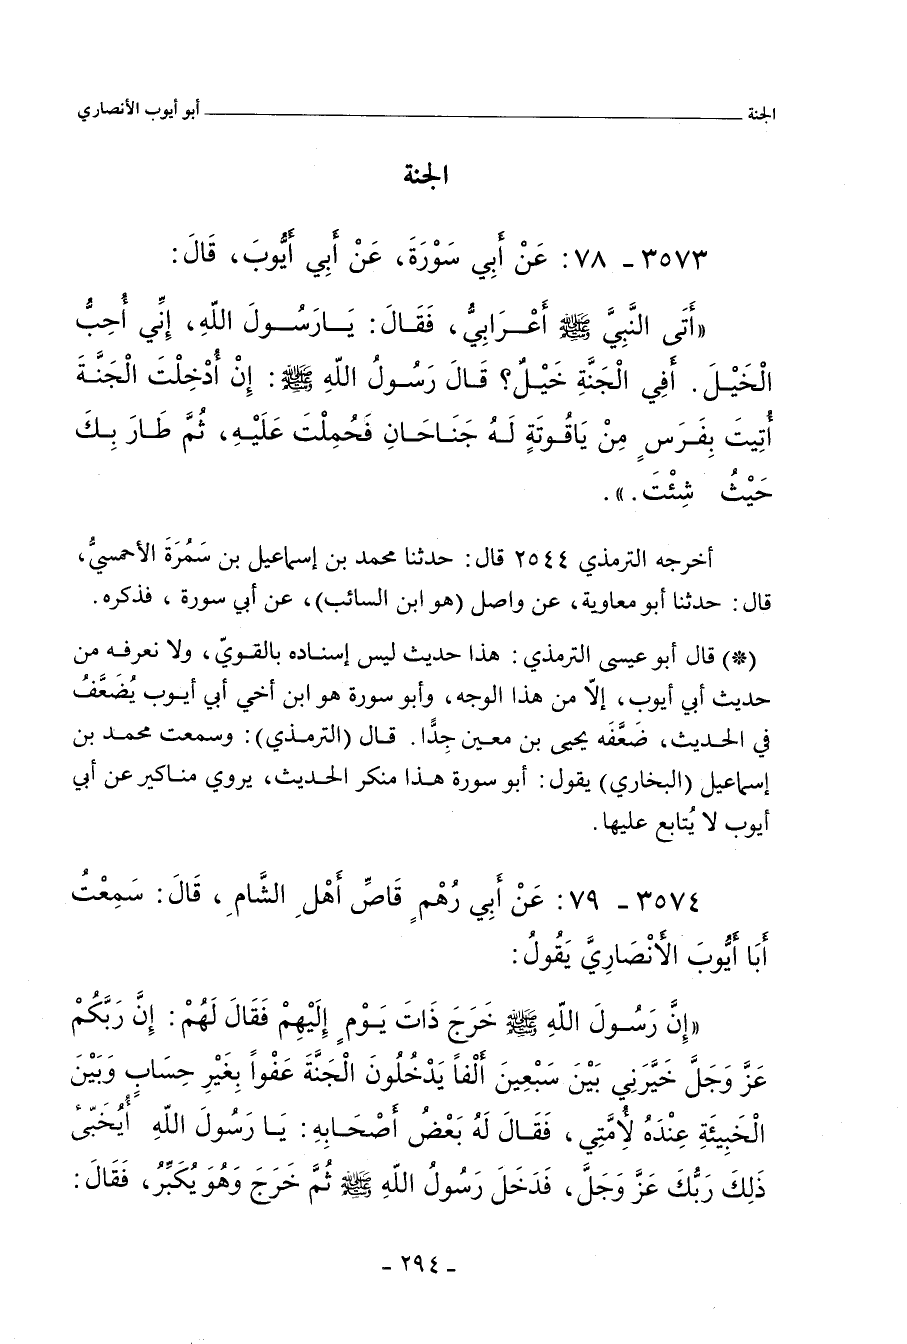 الجنة ــــــــــــــــــــ أبو أيوب الأنصاري
الجنة
٣٥٧٣ ـ ٧٨: عَنْ أَبِي سَوْرَةَ، عَنْ أَبِي أَيُّوبَ، قَالَ:
«أَتَى النَّبِيَّ ﷺ أَعْرَابِيٌّ، فَقَالَ: يَارَسُولَ اللّهِ، إِنِّي أُحِبُّ
الْخَيْلَ. أَفِي الْجَنَّةِ خَيْلٌ؟ قَالَ رَسُولُ اللّهِ ﷺ: إِنْ أُدْخِلْتَ الْجَنَّةَ
أُتِيتَ بِفَرَسٍ مِنْ يَاقُوتَةٍ لَهُ جَنَاحَانِ فَحُمِلْتَ عَلَيْهِ، ثُمَّ طَارَ بِكَ
حَيْثُ شِئْتَ.».
أخرجه الترمذي ٢٥٤٤ قال: حدثنا محمد بن إسماعيل بن سَمُرَةَ الأحمسيُّ،
قال: حدثنا أبو معاوية، عن واصل (هو ابن السائب)، عن أبي سورة، فذكره.
(*) قال أبو عيسى الترمذي: هذا حديث ليس إسناده بالقويّ، ولا نعرفه من
حديث أبي أيوب، إلّا من هذا الوجه، وأبو سورة هو ابن أخي أبي أيوب يُضَعَّفُ
في الحديث، ضَعَّفَه يحيى بن معين جِدًّا. قال (الترمذي): وسمعت محمد بن
إسماعيل (البخاري) يقول: أبو سورة هذا منكر الحديث، يروي مناكير عن أبي
أيوب لا يُتابع عليها.
٣٥٧٤ ـ ٧٩: عَنْ أَبِي رُهْمٍ قَاصِّ أَهْلِ الشَّامِ، قَالَ: سَمِعْتُ
أَبَا أَيُّوبَ الأَنْصَارِيَّ يَقُولُ:
«إِنَّ رَسُولَ اللّهِ ﷺ خَرَجَ ذَاتَ يَوْمٍ إِلَيْهِمْ فَقَالَ لَهُمْ: إِنَّ رَبَّكُمْ
عَزَّ وَجَلَّ خَيَّرَنِي بَيْنَ سَبْعِينَ أَلْفاً يَدْخُلُونَ الْجَنَّةَ عَفْواً بِغَيْرِ حِسَابٍ وَبَيْنَ
الْخَبِيئَةِ عِنْدَهُ لأُمَّتِي، فَقَالَ لَهُ بَعْضُ أَصْحَابِهِ: يَا رَسُولَ اللّهِ أَيُخَبِّئُ
ذَلِكَ رَبُّكَ عَزَّ وَجَلَّ، فَدَخَلَ رَسُولُ اللّهِ ﷺ ثُمَّ خَرَجَ وَهُوَ يُكَبِّرُ، فَقَالَ:
ـ ٢٩٤ ـ